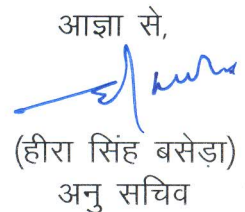 आज्ञा से,
(हीरा सिंह बसेड़ा)
अनु सचिव